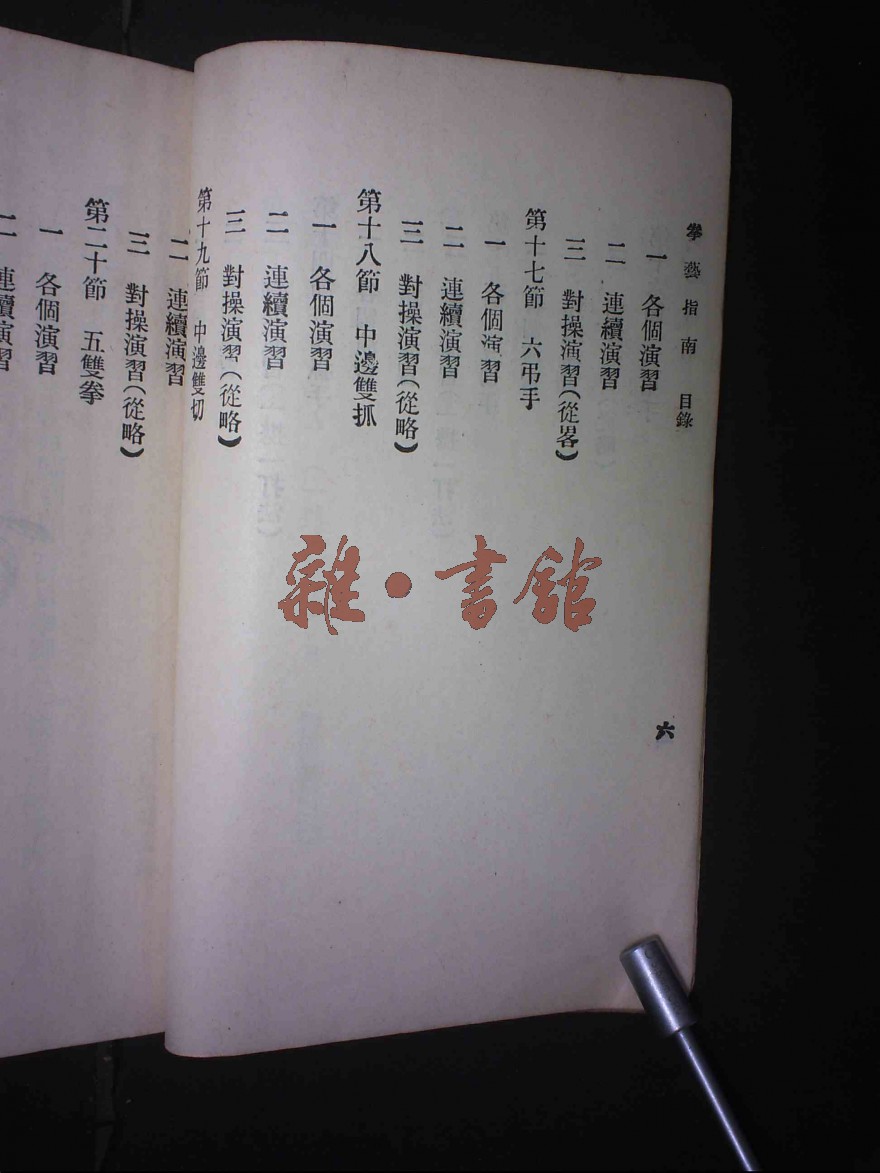 拳藝指南 目錄
一 各個演習
二 連續演習
三 對操演習(從畧)
第十七節 六吊手
一 各個演習
二 連續演習
三 對操演習(從略)
第十八節 中邊雙抓
一 各個演習
二 連續演習
三 對操演習(從略)
第十九節 中邊雙切
二 連續演習
三 對操演習(從略)
第二十節 五雙拳
一 各個演習
二 連續演習
六
雜·書館